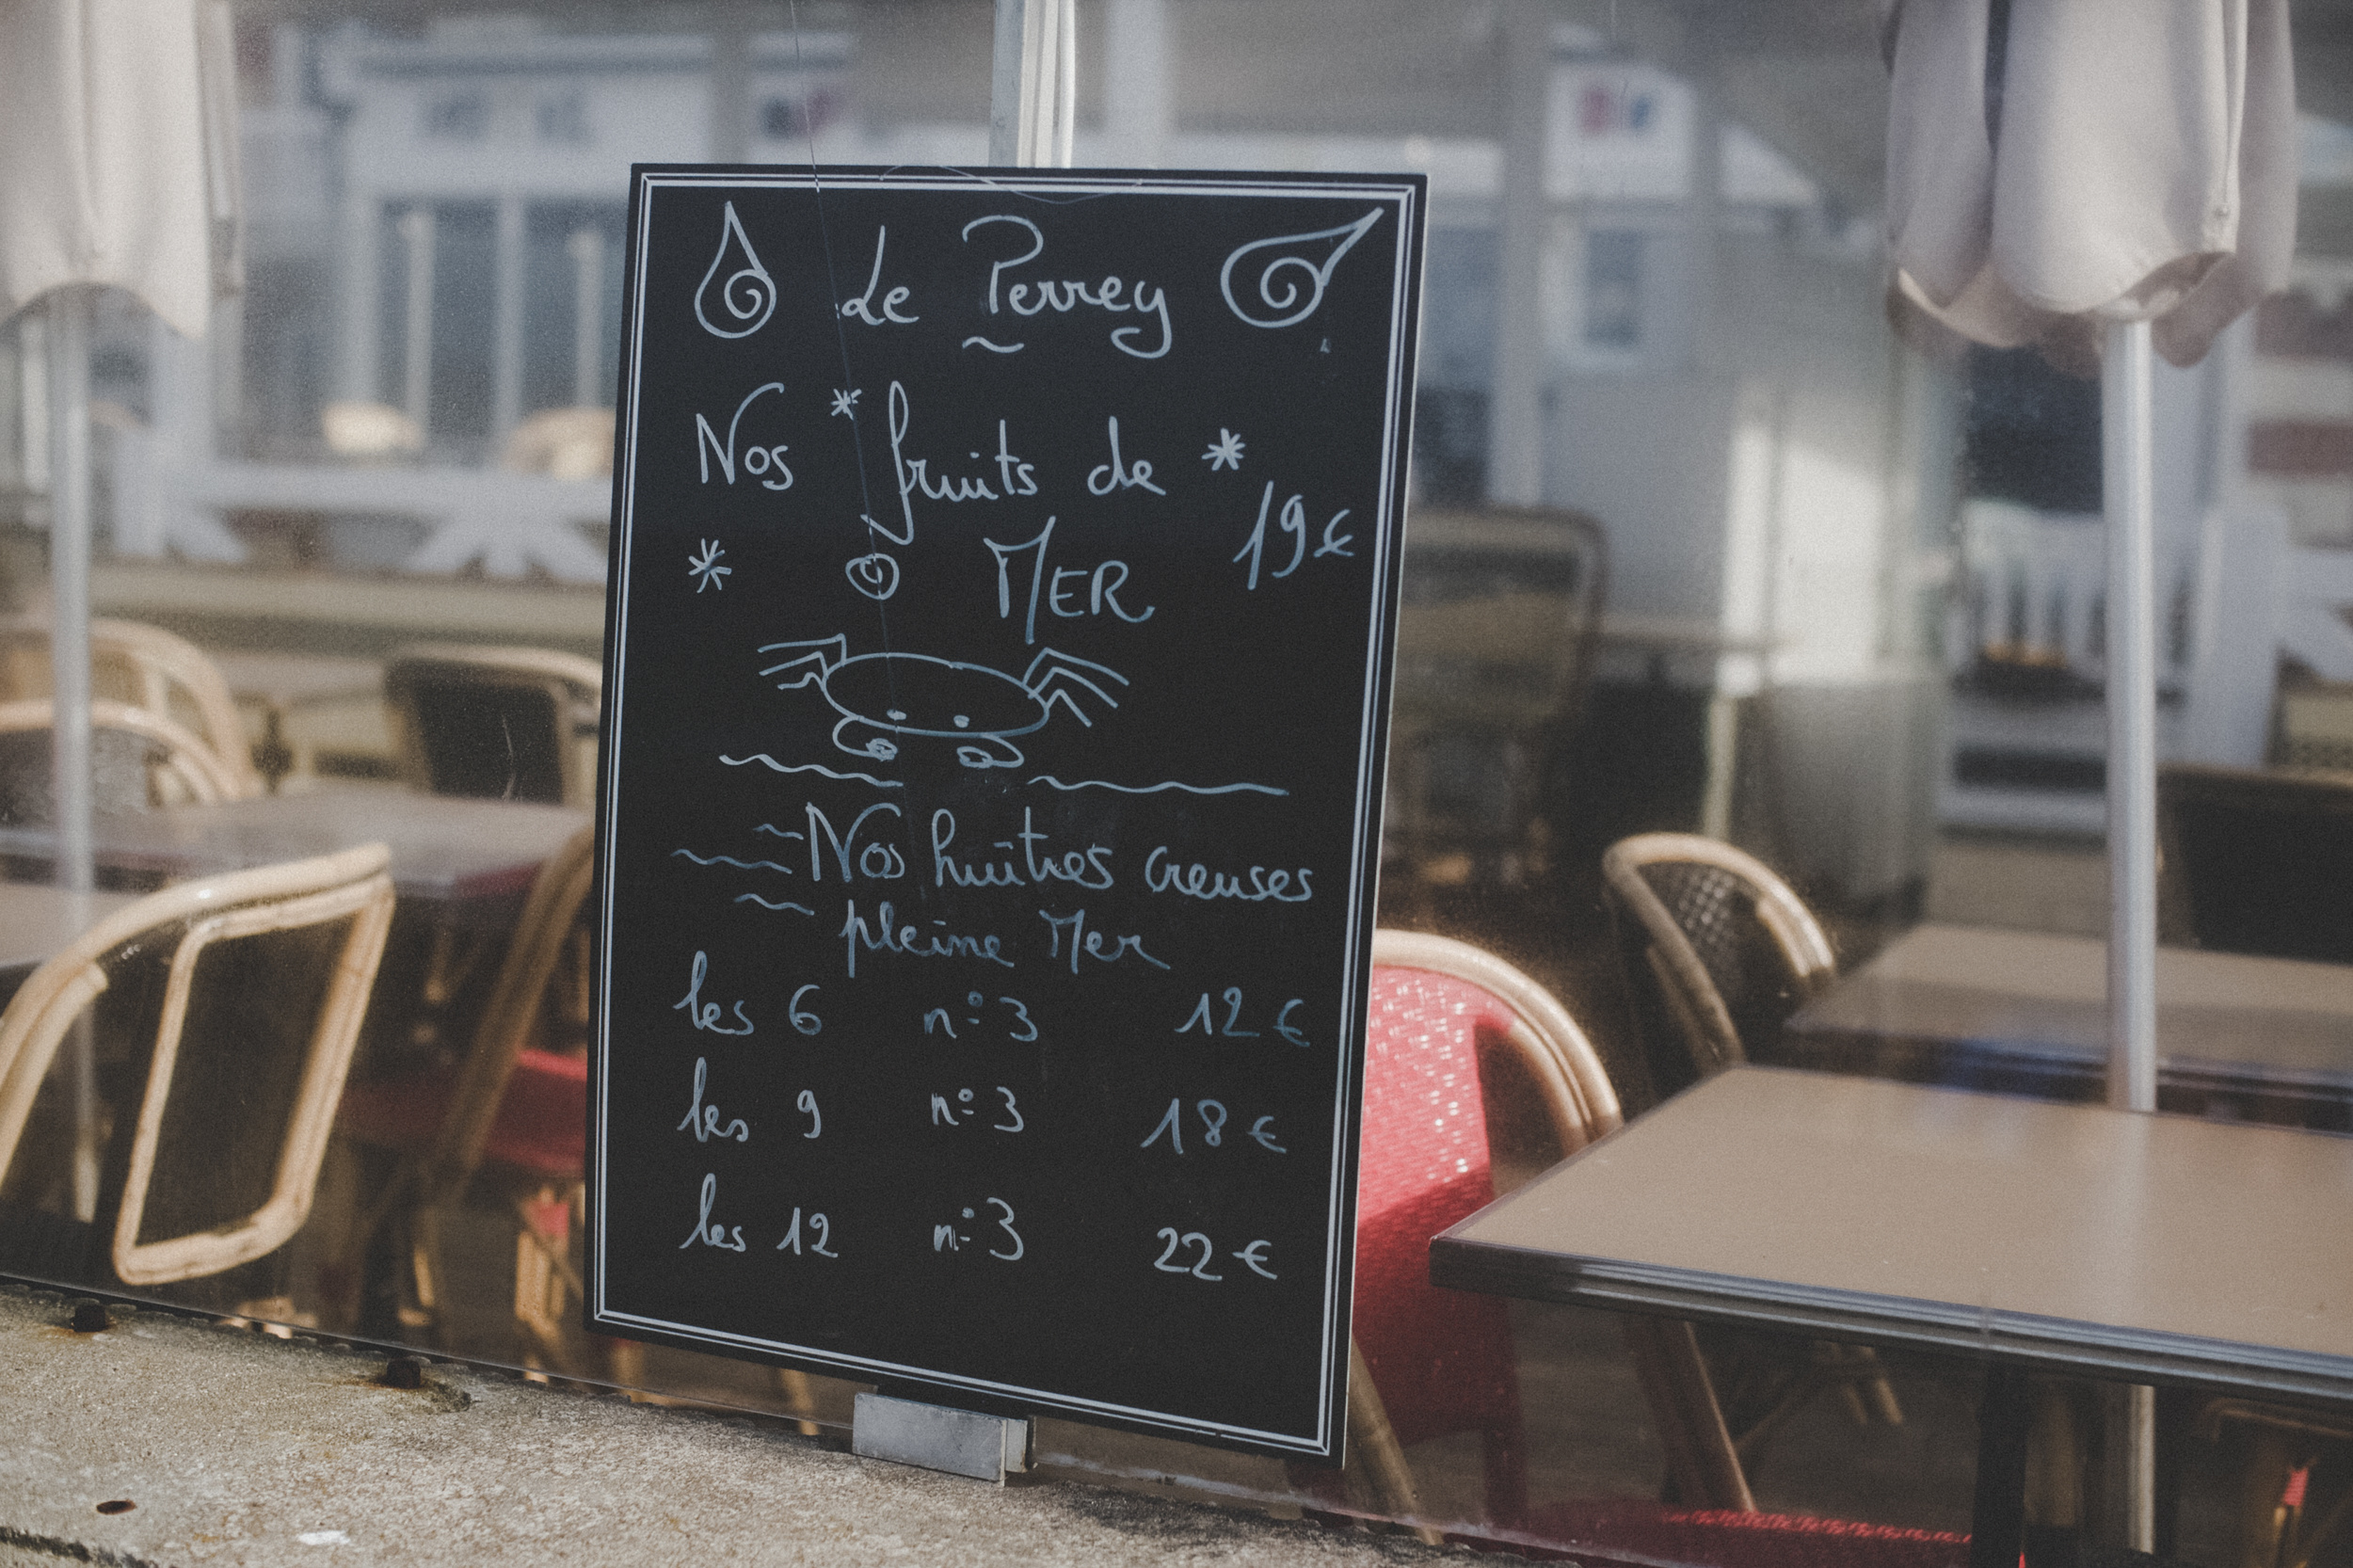 Le Perrey
Nos fruits de
MER 19€
Nos huîtres creuses
pleine Mer
les 6 n°3 12€
les 9 n°3 18€
les 12 n°3 22€